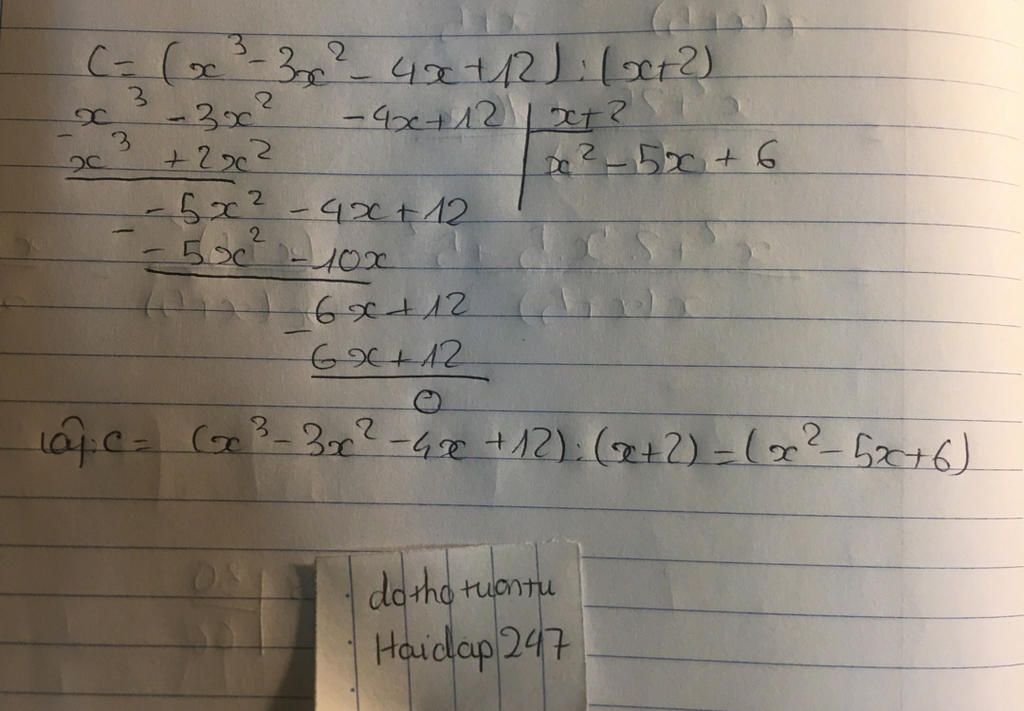 C = (x³ - 3x² - 4x + 12) : (x+2)
x³ - 3x² - 4x + 12 | x+2
- x³ + 2x² | x² - 5x + 6
- 5x² - 4x + 12
- - 5x² - 10x
6x + 12
- 6x + 12
0
C = (x³ - 3x² - 4x + 12) : (x+2) = (x² - 5x + 6)
dothotuontu
Hoidap247